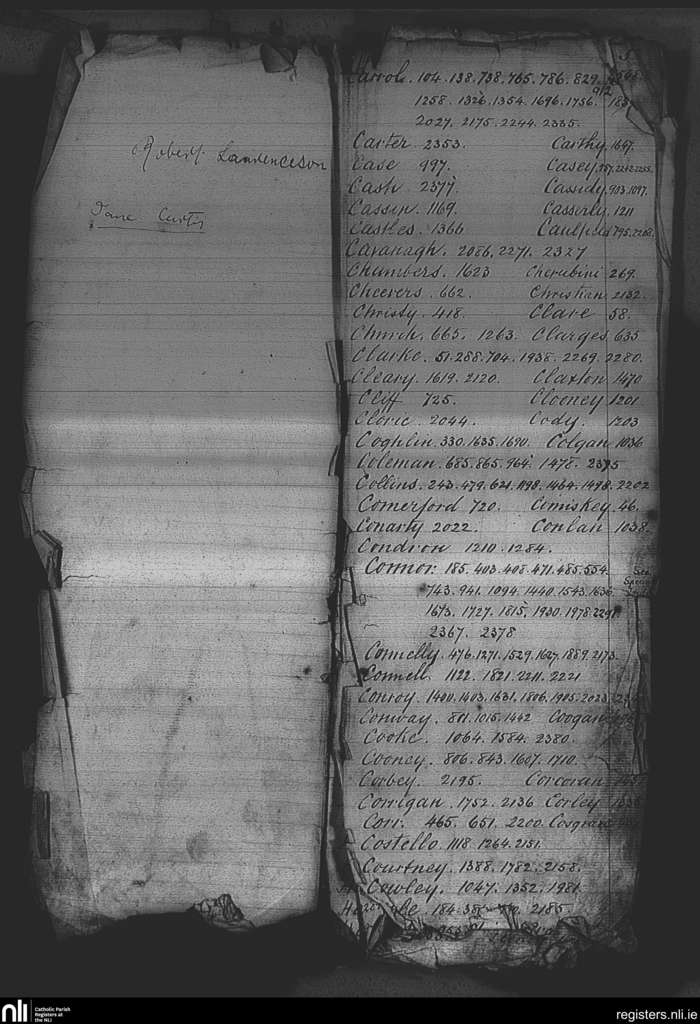 Robert Lawrenceson
Jane Curtis
Carroll. 104. 138. 738. 765. 786. 829.
912
1258. 1326. 1354. 1696. 1756.
2027. 2175. 2244. 2335.
Carter 2353. Carthy. 1647.
Case 997. Casey.
Cash 2377. Cassidy. 903. 1097.
Cassin. 1169. Casserly. 1211
Castles. 1366 Caulfield 795. 2268.
Cavanagh. 2086. 2271. 2327
Chambers. 1623 Cherubini 269.
Cheevers. 662. Christian 2132.
Christy. 418. Clare 58.
Church. 665. 1263. Clarges 635
Clarke. 51. 288. 704. 1938. 2269. 2280.
Cleary. 1619. 2120. Claxton 1470
Cliff 725. Clooney 1201
Cloric 2044. Cody. 1203
Coghlin. 330. 1635. 1690. Colgan 1036
Coleman. 685. 865. 964. 1478. 2375
Collins. 243. 479. 621. 1198. 1464. 1498. 2202
Comerford 720. Comiskey. 46.
Conarty 2022. Conlan 1038.
Condron 1210. 1284.
Connor. 185. 403. 408. 471. 485. 554.
See
743. 941. 1094. 1440. 1543. 1636.
1673. 1727. 1815. 1930. 1978.
2367. 2378
Connelly. 476. 1271. 1529. 1627. 1889. 2173.
Connell 1122. 1821. 2211. 2221
Conroy. 1400. 1403. 1631. 1806. 1905. 2023.
Conway. 811. 1015. 1442 Coogan
Cooke. 1064. 1584. 2380.
Cooney. 806. 843. 1607. 1710.
Corbey. 2195. Corcoran
Corrigan. 1752. 2136 Corley
Corr. 465. 651. 2200. Cosgrave
Costello. 1118. 1264. 2151.
Courtney. 1388. 1782. 2158.
Cowley. 1047. 1352. 1981
184. 2185.
nli Catholic Parish
Registers at
the NLI
registers.nli.ie